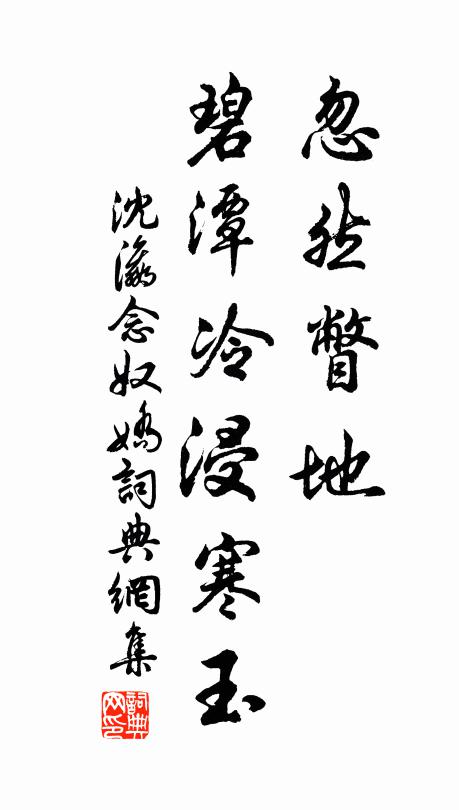 忽然瞥地
碧潭冷浸寒玉
沈瀛念奴嬌詞典網集
詞典網印